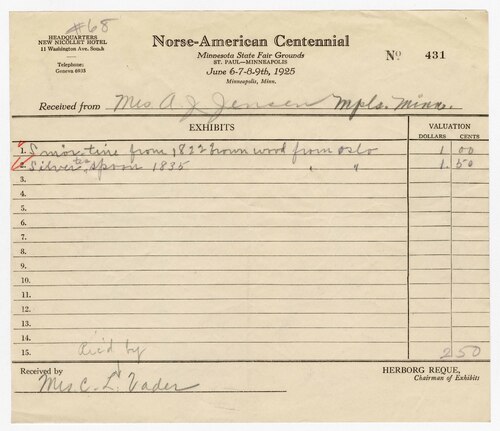 #68
HEADQUARTERS
NEW NICOLLET HOTEL
11 Washington Ave. South
Telephone:
Geneva 6935
Norse-American Centennial
Minnesota State Fair Grounds
ST. PAUL—MINNEAPOLIS
June 6-7-8-9th, 1925
Minneapolis, Minn.
No 431
Received from Mrs A J Jensen Mpls. Minn.
EXHIBITS
VALUATION
DOLLARS CENTS
1. Smör-tine from 1822 brown wood from Oslo 1 00
2. Silver tea spoon 1835 " " 1. 50
3.
4.
5.
6.
7.
8.
9.
10.
11.
12.
13.
14.
15. 2 50
Rec'd by
Received by
Mrs C. L. Vader
HERBORG REQUE,
Chairman of Exhibits